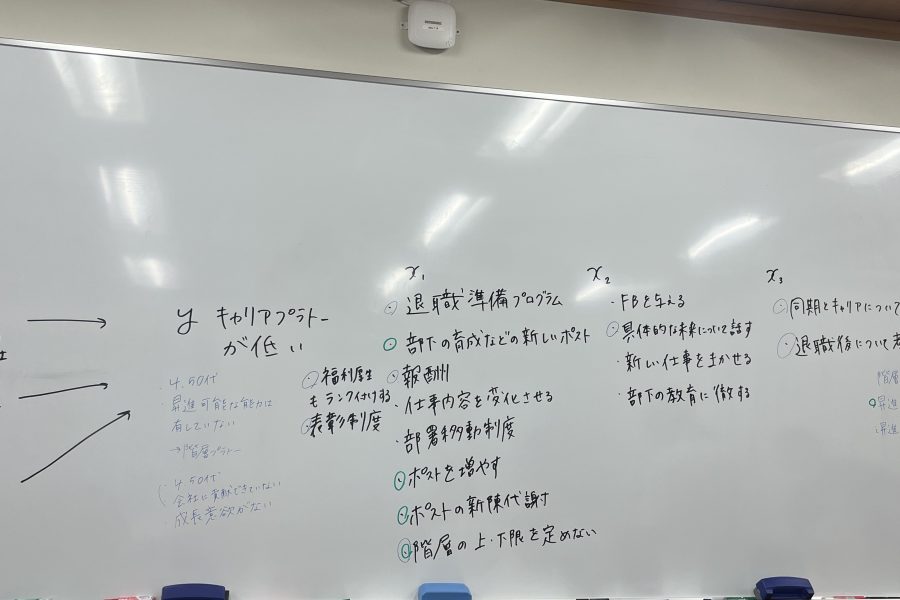 y キャリアプラトー
が低い
・4.50代
・昇進可能な能力は
有していない
→階層プラトー
・4.50代
会社に貢献できていない
・成長意欲がない
・福利厚生
もランク付けする
・表彰制度
x₁
・退職準備プログラム
・部下の育成などの新しいポスト
・報酬州
・仕事内容を変化させる
・部署移動制度
・ポストを増やす
・ポストの新陳代謝
・階層の上・下限を定めない
x₂
・FBを与える
・具体的な未来について話す
・新しい仕事をまかせる
・部下の教育に徹する
x₃
・同期とキャリアについて
・退職後について
階層
昇進
昇進